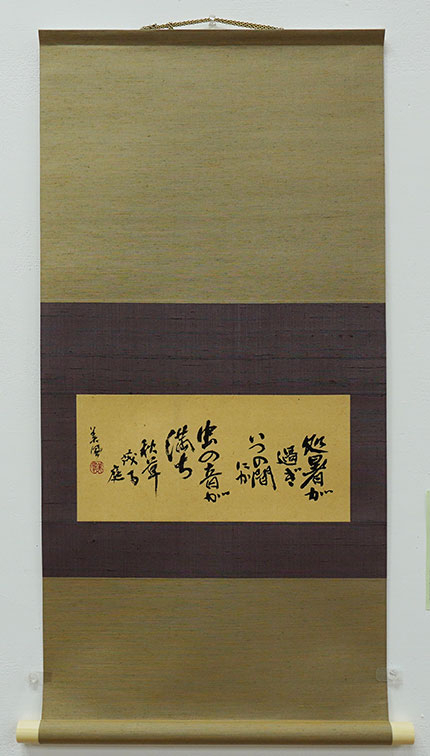 処暑が
過ぎ
いつの間
にか
虫の音が
満ち
秋草
庭
美風